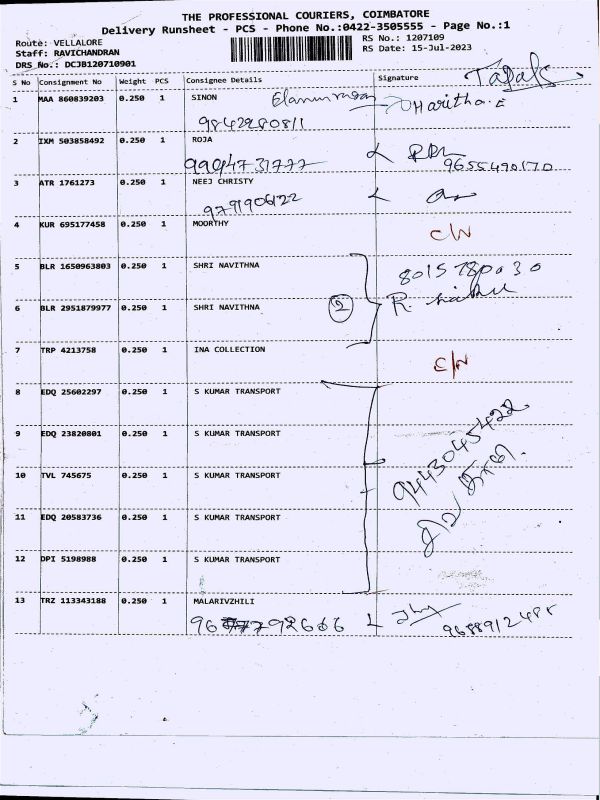 THE PROFESSIONAL COURIERS, COIMBATORE
Delivery Runsheet - PCS - Phone No.:0422-3505555 - Page No.:1
Route: VELLALORE
RS No.: 1207109
Staff: RAVICHANDRAN
RS Date: 15-Jul-2023
DRS No.: DCJB120710901
S No Consignment No Weight PCS Consignee Details Signature
1 MAA 860839203 0.250 1 SINON Haritha.E
9842280811
2 IXM 503858492 0.250 1 ROJA
9655490170
3 ATR 1761273 0.250 1 NEEJ CHRISTY
4 KUR 695177458 0.250 1 MOORTHY
5 BLR 1650963803 0.250 1 SHRI NAVITHNA
6 BLR 2951879977 0.250 1 SHRI NAVITHNA 2
7 TRP 4213758 0.250 1 INA COLLECTION
8 EDQ 25602297 0.250 1 S KUMAR TRANSPORT
9 EDQ 23820801 0.250 1 S KUMAR TRANSPORT
9443045422
10 TVL 745675 0.250 1 S KUMAR TRANSPORT
11 EDQ 20583736 0.250 1 S KUMAR TRANSPORT
12 DPI 5198988 0.250 1 S KUMAR TRANSPORT
13 TRZ 113343188 0.250 1 MALARIVZHILI